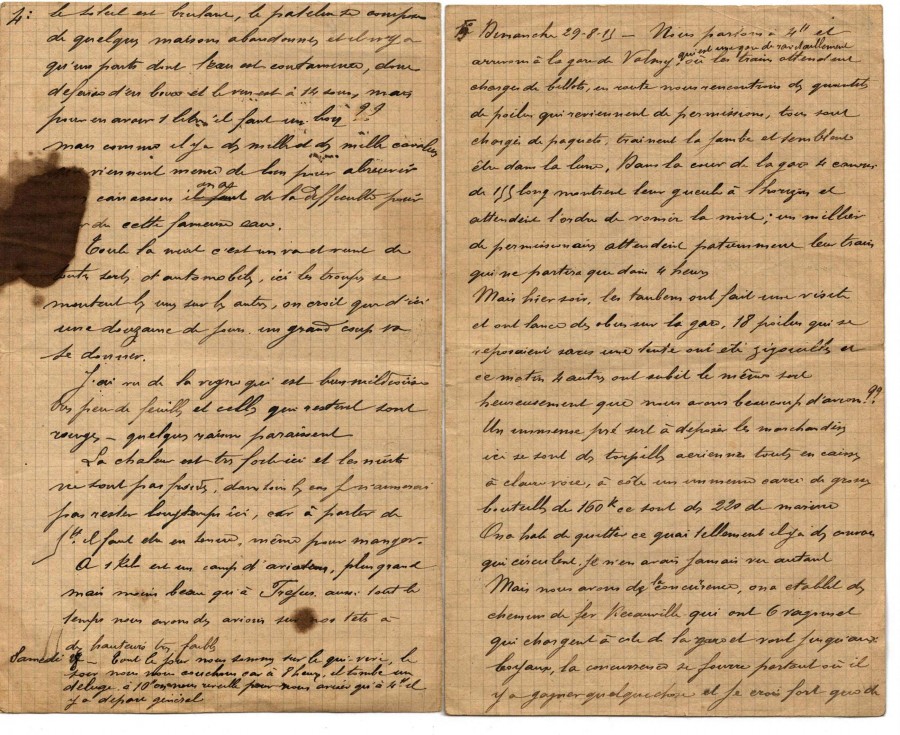 4: le soleil est brulant, le patelin se compose
de quelques maisons abandonnées et il n'y a
qu'un puits dont l'eau est contaminée, donc
défense d'en boire et le vin est à 14 sous, mais
pour en avoir 1 litre il faut un bon ??
mais comme il y a des milles et des mille cavaliers
viennent même de loin pour abreuver
canassons il y a de la difficulté pour
de cette fameuse eau.
Toute la nuit c'est un va et vient de
toutes sortes d'automobiles, ici les troupes se
montent les uns sur les autres, on croit que d'ici
une douzaine de jours, un grand coup va
se donner.
J'ai vu de la vigne qui est bien
très peu de feuilles et celles qui restent sont
rouges - quelques raisins paraissent
La chaleur est très forte ici et les nuits
ne sont pas froides, dans tous les cas je n'aimerai
pas rester longtemps ici, car à partir de
il faut être en tenue, même pour manger.
A 1 Kil est un camp d'aviation, plus grand
mais moins beau qu'à aussi tout le
temps nous avons des avions sur nos têtes à
des hauteurs très faibles
Samedi - Tout le jour nous sommes sur le qui-vive, le
soir nous nous couchons car à 9 heures, il tombe un
déluge à 10h on nous réveille pour nous qu'à 4h il
y a départ général
5 Dimanche 29-8-15 - Nous partons à 4h et
arrivons à la gare de Valmy, qui est une gare de ravitaillement
où les trains attendaient
chargés de en route nous rencontrons des quantités
de poilus qui reviennent de permission, tous sont
chargés de paquets, trainent la jambe et semblent
être dans la lune, Dans la cour de la gare 4 canons
de 155 long montrent leur gueule à l'horizon et
attendent l'ordre de vomir la mort; un millier
de permissionnaires attendent patiemment leur train
qui ne partira que dans 4 heures
Mais hier soir, les taubens ont fait une visite
et ont lancé des obus sur la gare, 18 poilus qui se
reposaient sous une tente ont été zigouillés et
ce matin 4 autres ont subit le même sort
heureusement que nous avons beaucoup d'avions ??
Un immense pré sert à déposer les marchandises
ici se sont des torpilles aériennes toutes en caisses
à claire voie, à côté un immense carré de grosses
bouteilles de 160k ce sont des 220 de marine
On a hate de quitter ce quai tellement il y a des
qui circulent, je n'en avais jamais vu autant
Mais nous avons de la concurrence, on a etablit des
chemins de fer Decauville qui ont 6 wagonnets
qui chargent à côté de la gare et vont jusqu'aux
boyaux, la concurrence se fourre partout où il
y a gagner quelque chose et je crois fort que de